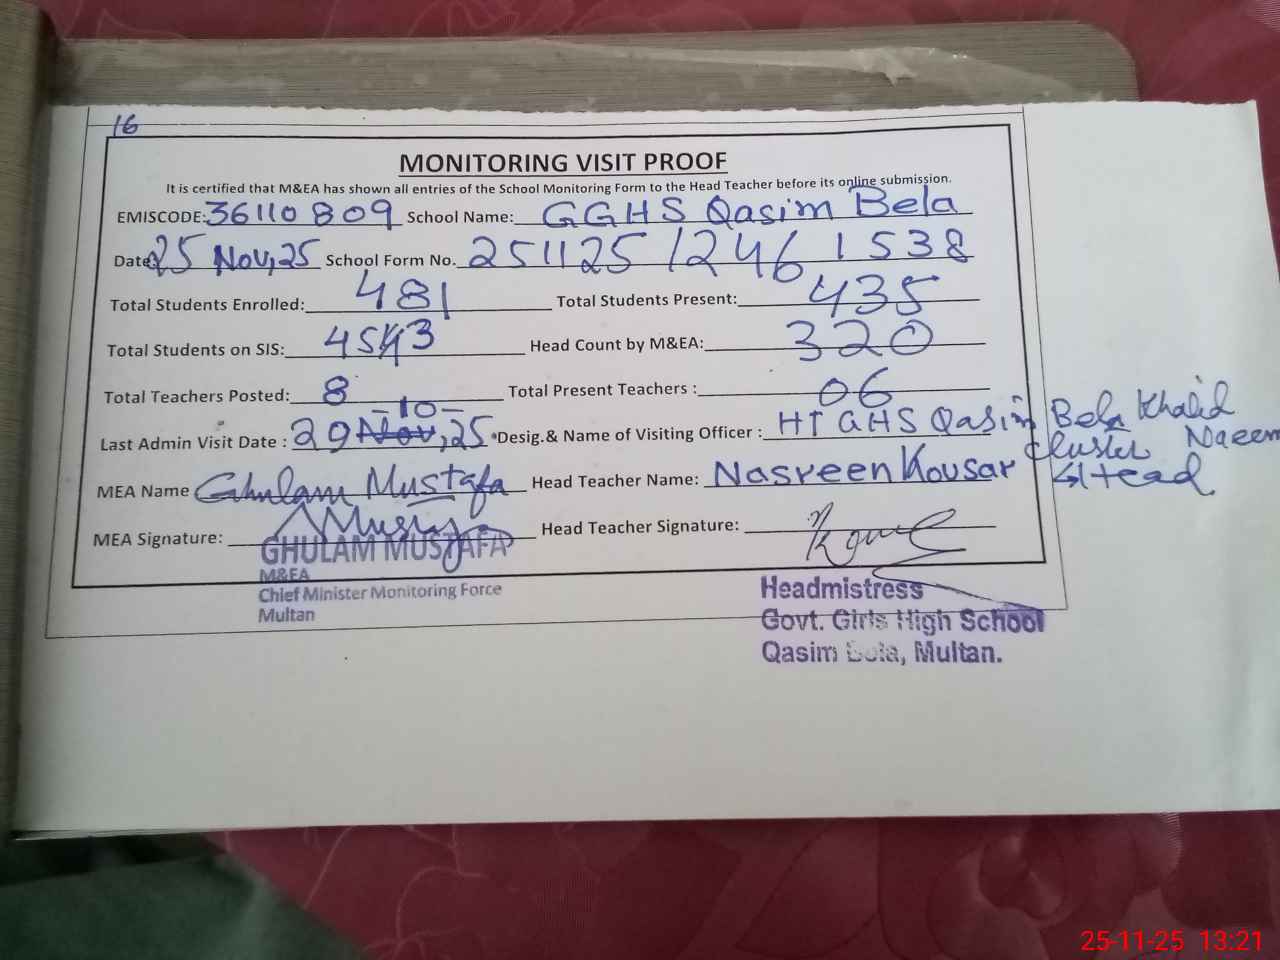 16
MONITORING VISIT PROOF
It is certified that M&EA has shown all entries of the School Monitoring Form to the Head Teacher before its online submission.
EMISCODE: 36110809 School Name: GGHS Qasim Bela
Date 25 Nov,25 School Form No. 251125 1246 1538
Total Students Enrolled: 481 Total Students Present: 435
Total Students on SIS: 45 3 Head Count by M&EA: 320
Total Teachers Posted: 8 Total Present Teachers : 06
Last Admin Visit Date : 29 -10- Nov,25 Desig.& Name of Visiting Officer : HT GHS Qasim Bela Khalid Naeem
Cluster Head
MEA Name Ghulam Mustafa Head Teacher Name: Nasreen Kousar
MEA Signature: Head Teacher Signature:
GHULAM MUSTAFA
M&EA
Chief Minister Monitoring Force
Multan
Headmistress
Govt. Girls High School
Qasim Bela, Multan.
25-11-25 13:21